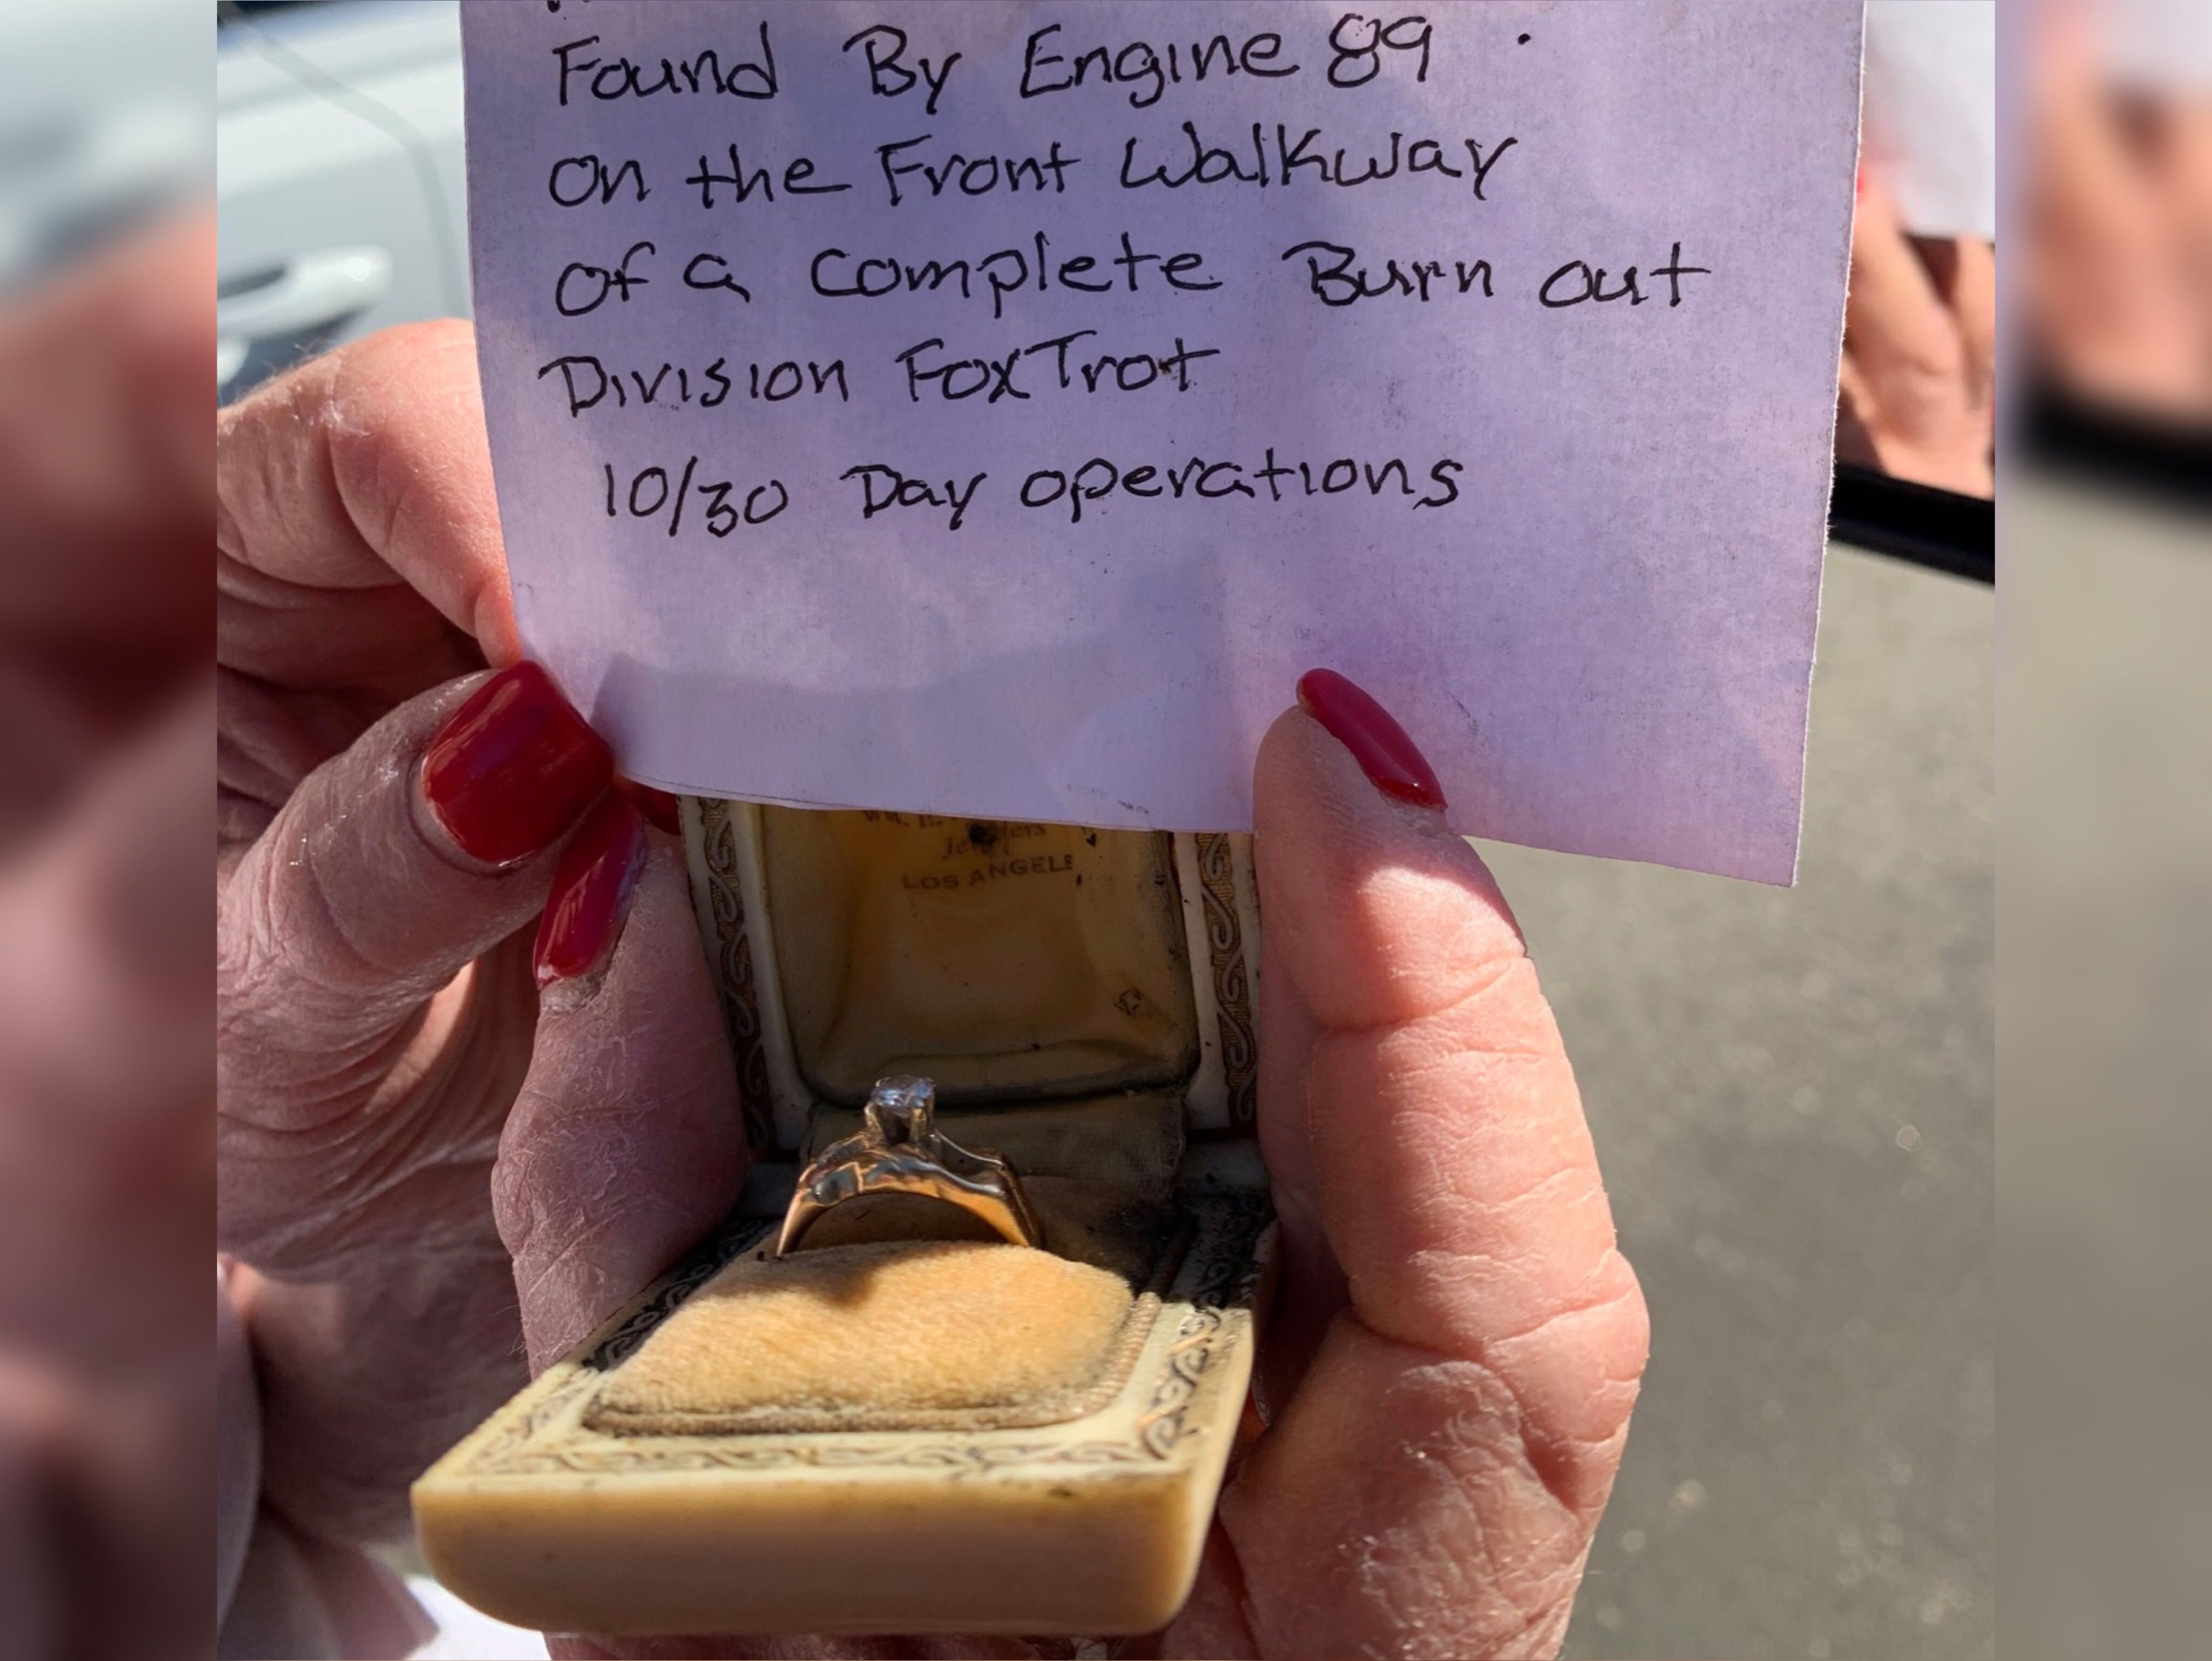 Found By Engine 89
on the Front Walkway
of a complete Burn out
Division FoxTrot
10/30 Day operations
LOS ANGELE